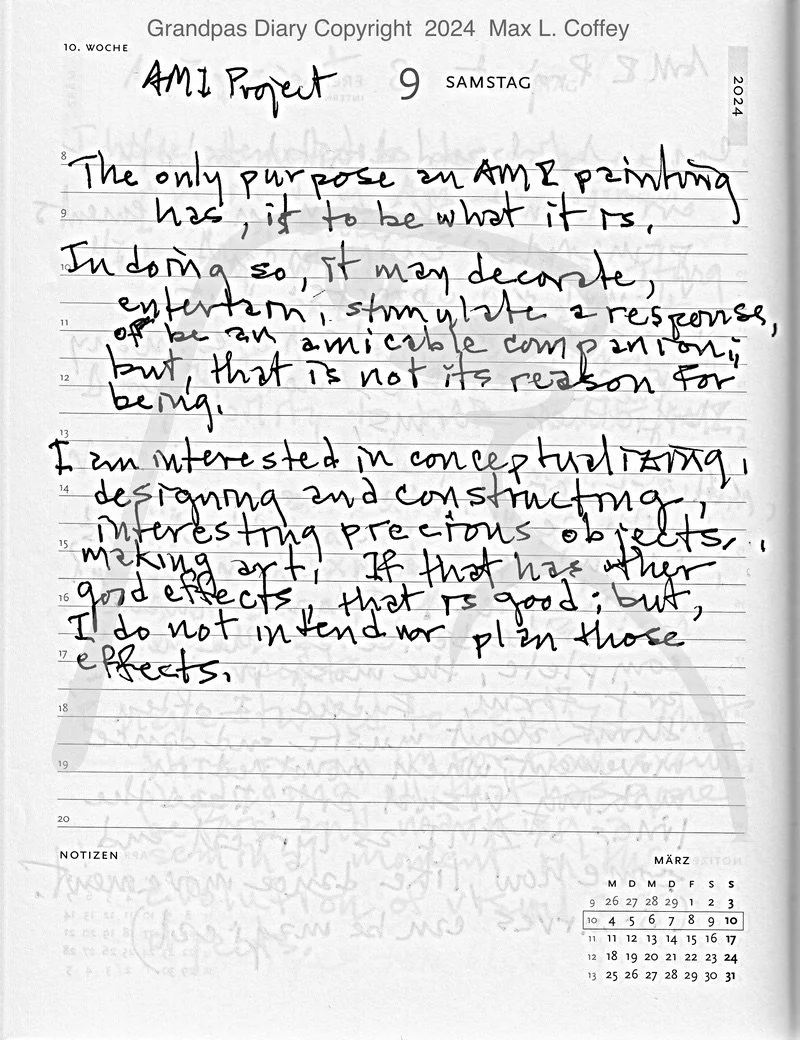 Grandpas Diary Copyright 2024 Max L. Coffey
10. WOCHE
AMI Project 9 SAMSTAG
2024
8
The only purpose an AMI painting
9
has, is to be what it is.
10
In doing so, it may decorate,
entertain, stimulate a response,
11
or be an amicable companion;
but, that is not its reason for
12
being.
13
I am interested in conceptualizing,
14
designing and constructing,
interesting precious objects,
15
making art. If that has other
16
good effects, that is good; but,
I do not intend nor plan those
17
effects.
18
19
20
NOTIZEN
MÄRZ
M D M D F S S
9 26 27 28 29 1 2 3
10 4 5 6 7 8 9 10
11 11 12 13 14 15 16 17
12 18 19 20 21 22 23 24
13 25 26 27 28 29 30 31